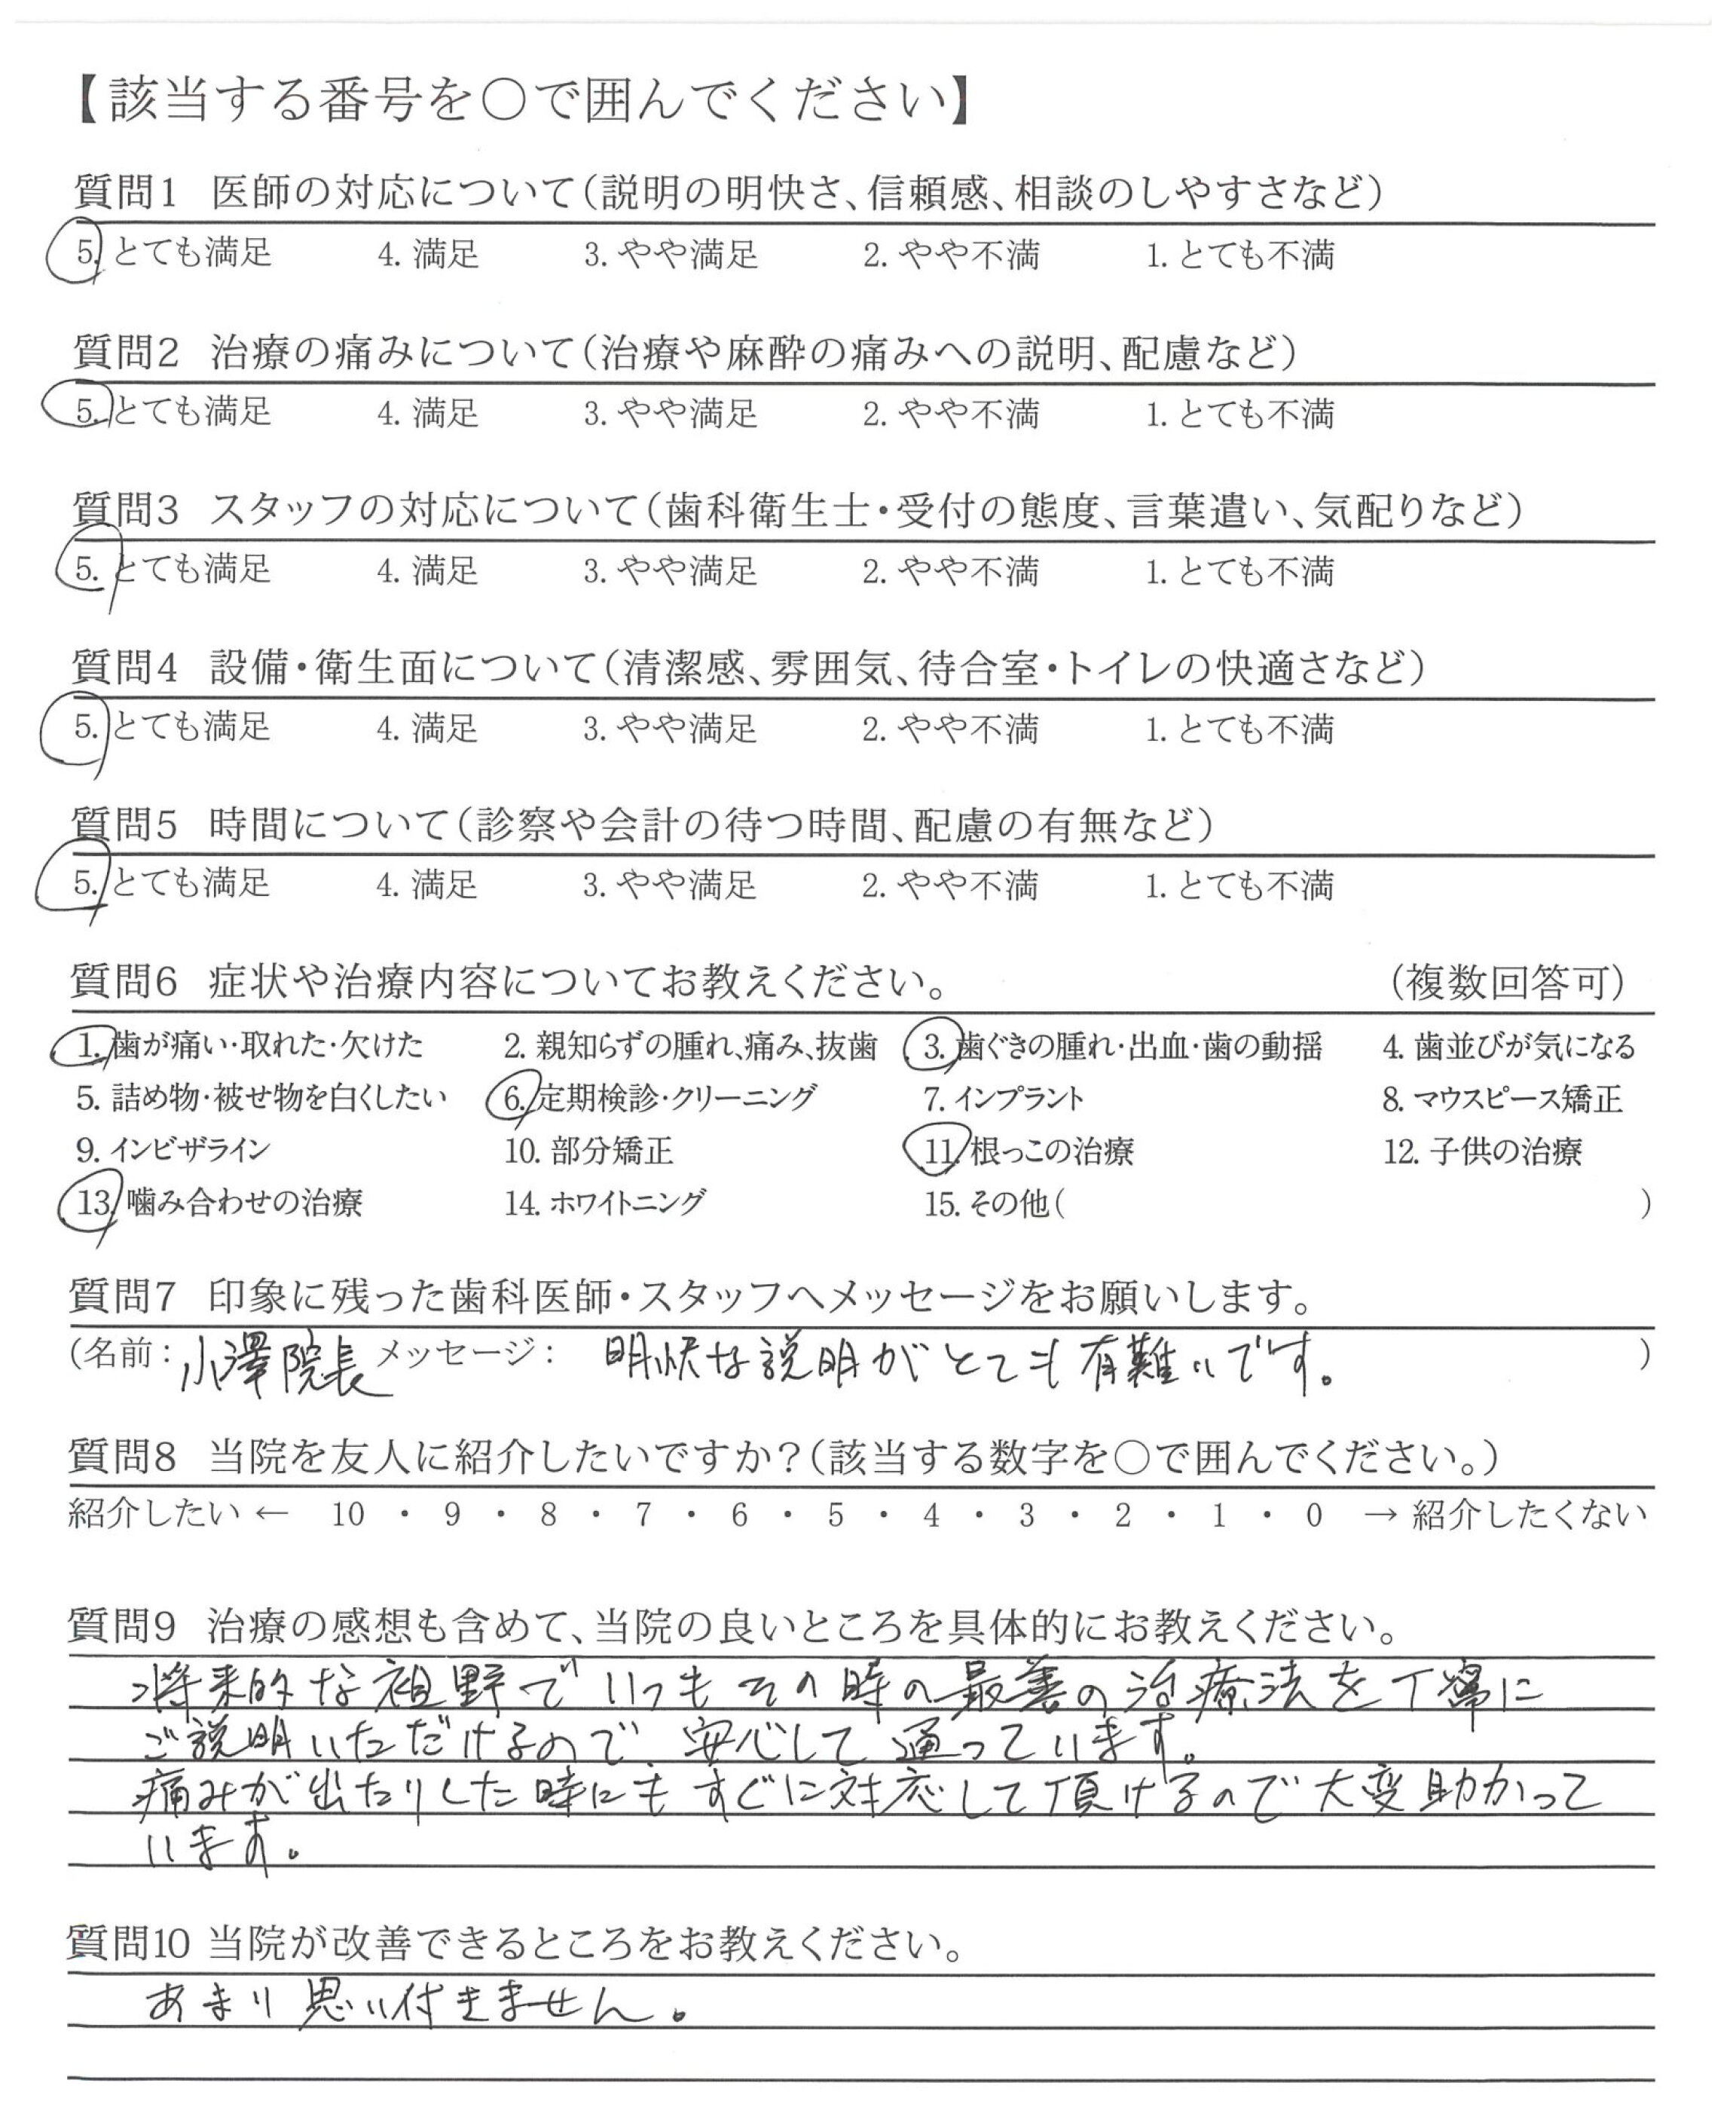 【該当する番号を○で囲んでください】
質問1 医師の対応について(説明の明快さ、信頼感、相談のしやすさなど)
5. とても満足 4. 満足 3. やや満足 2. やや不満 1. とても不満
質問2 治療の痛みについて(治療や麻酔の痛みへの説明、配慮など)
5. とても満足 4. 満足 3. やや満足 2. やや不満 1. とても不満
質問3 スタッフの対応について(歯科衛生士・受付の態度、言葉遣い、気配りなど)
5. とても満足 4. 満足 3. やや満足 2. やや不満 1. とても不満
質問4 設備・衛生面について(清潔感、雰囲気、待合室・トイレの快適さなど)
5. とても満足 4. 満足 3. やや満足 2. やや不満 1. とても不満
質問5 時間について(診察や会計の待つ時間、配慮の有無など)
5. とても満足 4. 満足 3. やや満足 2. やや不満 1. とても不満
質問6 症状や治療内容についてお教えください。 (複数回答可)
1. 歯が痛い・取れた・欠けた 2. 親知らずの腫れ、痛み、抜歯 3. 歯ぐきの腫れ・出血・歯の動揺 4. 歯並びが気になる
5. 詰め物・被せ物を白くしたい 6. 定期検診・クリーニング 7. インプラント 8. マウスピース矯正
9. インビザライン 10. 部分矯正 11. 根っこの治療 12. 子供の治療
13. 噛み合わせの治療 14. ホワイトニング 15. その他( )
質問7 印象に残った歯科医師・スタッフへメッセージをお願いします。
(名前: 小澤院長 メッセージ: 明快な説明がとても有難いです。 )
質問8 当院を友人に紹介したいですか?(該当する数字を○で囲んでください。)
紹介したい ← 10 ・ 9 ・ 8 ・ 7 ・ 6 ・ 5 ・ 4 ・ 3 ・ 2 ・ 1 ・ 0 → 紹介したくない
質問9 治療の感想も含めて、当院の良いところを具体的にお教えください。
将来的な視野でいつもその時の最善の治療法を丁寧に
ご説明いただけるので、安心して通っています。
痛みが出たりした時にもすぐに対応して頂けるので大変助かって
います。
質問10 当院が改善できるところをお教えください。
あまり思い付きません。